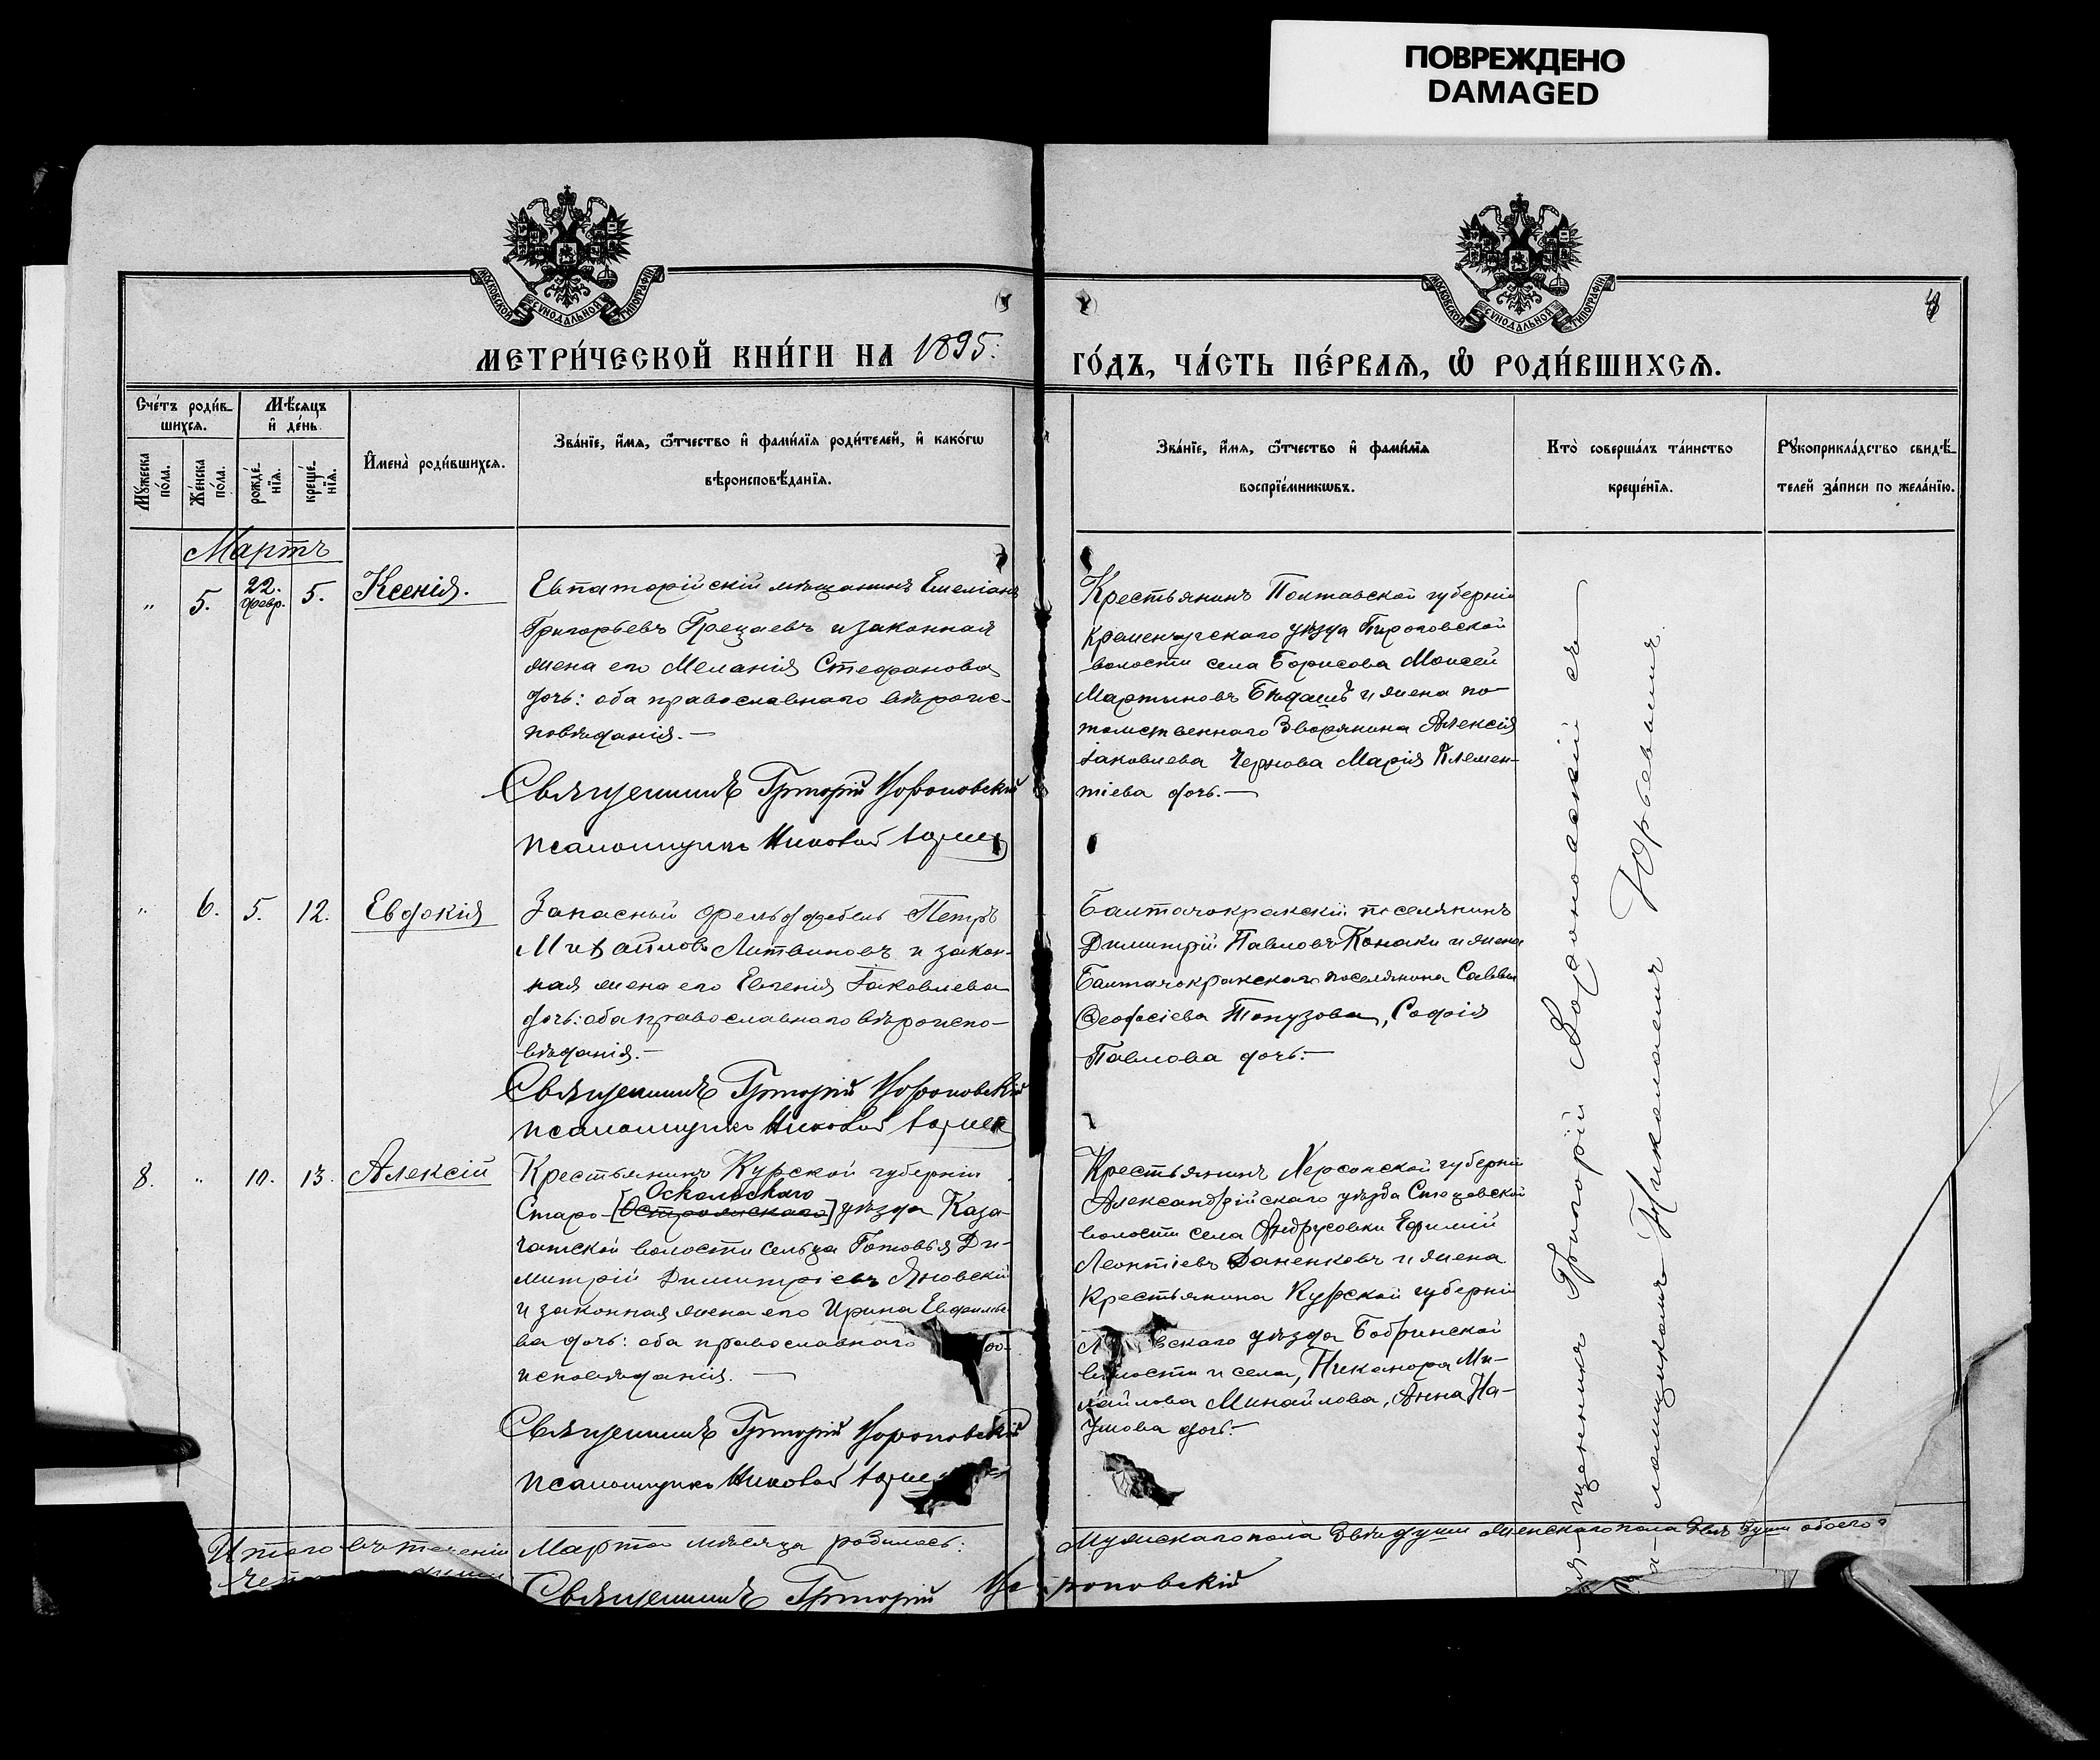 ПОВРЕЖДЕНО
DAMAGED
МОСКОВСКОЙ СѴНОДАЛЬНОЙ ТИПОГРАФІИ
МОСКОВСКОЙ СѴНОДАЛЬНОЙ ТИПОГРАФІИ
МЕТРИ́ЧЕСКОЙ КНИ́ГИ НА 1895.
ГО́ДЪ, ЧА́СТЬ ПЕ́РВАѦ, Ѽ РОДИ́ВШИХСѦ.
Сче́тъ роди́в-
шихся.
Мѣ́сяцъ
и҆ де́нь.
Му́жеска по́ла.
Же́нска по́ла.
рожде́-
нїя.
креще́-
нїя.
И҆мена̀ роди́вшихся.
Зва́нїе, и҆́мя, ѻ҆́тчество и҆ фами́лїя роди́телей, и҆ како́гѡ
вѣроисповѣ́данїя.
Зва́нїе, и҆́мя, ѻ҆́тчество и҆ фами́лїя
воспрїе́мникѡвъ.
Кто̀ соверша́лъ та́инство
креще́нїя.
Рꙋкоприкла́дство свидѣ́-
телей за́писи по жела́нїю.
Мартъ
" 5. 22. февр. 5. Ксенія.
Евпаторійскій мѣщанинъ Емеліанъ
Григорьевъ и законная
жена его Меланія Стефанова
дочь: оба православнаго вѣроис-
повѣданія.—
Священникъ Григорій
псаломщикъ Николай
Крестьянинъ Полтавской губерніи
Кременчугскаго уѣзда
волости села Борисова Моисей
Мартыновъ и жена по-
томственнаго дворянина Алексія
Іаковлева Чернова Марія Клемен-
тіева дочь.—
" 6. 5. 12. Евдокія
Запасный фельдфебель Петръ
Михайловъ Литвиновъ и закон-
ная жена его Евгенія Іаковлева
дочь: оба православнаго вѣроиспо-
вѣданія.—
Священникъ Григорій
псаломщикъ Николай
Балтачокракскій поселянинъ
Димитрій Павловъ Конаки и жена
Балтачокракскаго поселянина Саввы
Феодосіева Топузова, Софія
Павлова дочь.—
8. " 10. 13. Алексій
Крестьянинъ Курской губерніи
Оскольскаго
Старо-[] уѣзда Каза-
чанской волости сельца Готовья Ди-
митрій Димитріевъ Яновскій
и законная жена его Ирина
ва дочь: оба православнаго
исповѣданія.—
Священникъ Григорій
псаломщикъ Николай
Крестьянинъ Херсонской губерніи
Александрійскаго уѣзда
волости села Андрусовки Ефимій
Леонтіевъ Даненковъ и жена
Крестьянина Курской губерніи
вскаго уѣзда Бобринской
волости и села, Никанора Ми-
хайлова Михайлова, Анна На-
умова дочь.—
Григорій
Николаемъ Юрьевымъ.
Итого въ теченіи Марта мѣсяца родилось: Мужскаго пола двѣ души Женскаго пола двѣ души обоего
Священникъ Григорій